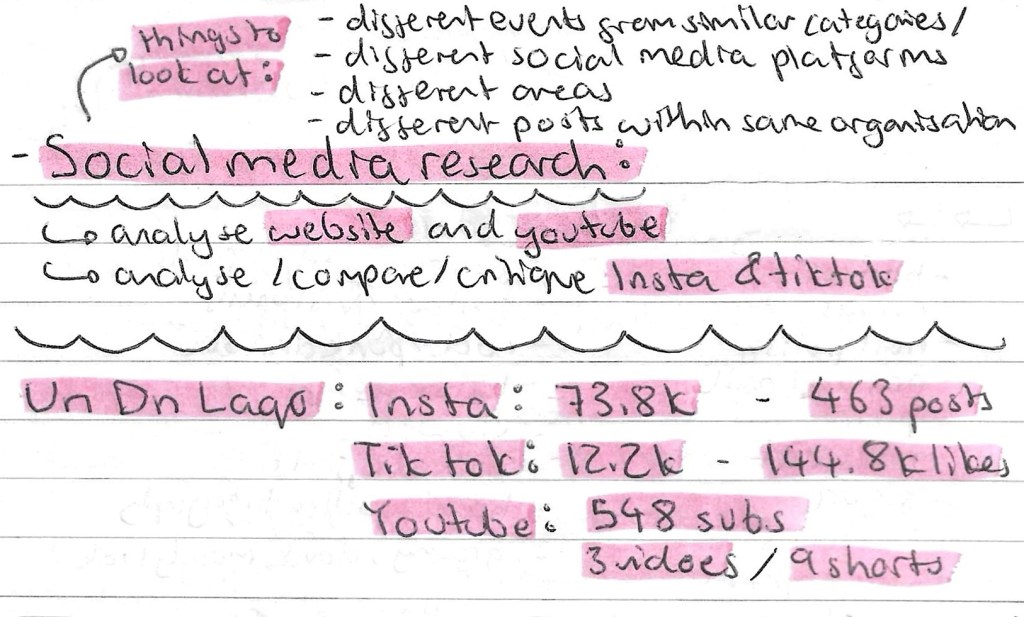 things to
look at:
- different events from similar categories/
- different social media platforms
- different areas
- different posts within same organisation
- Social media research:
↳ analyse website and youtube
↳ analyse /compare/critique Insta & tiktok
Un Dn Lago: Insta: 73.8k - 463 posts
Tik tok: 12.2k - 144.8k likes
Youtube: 548 subs
3 idoes / 9 shorts